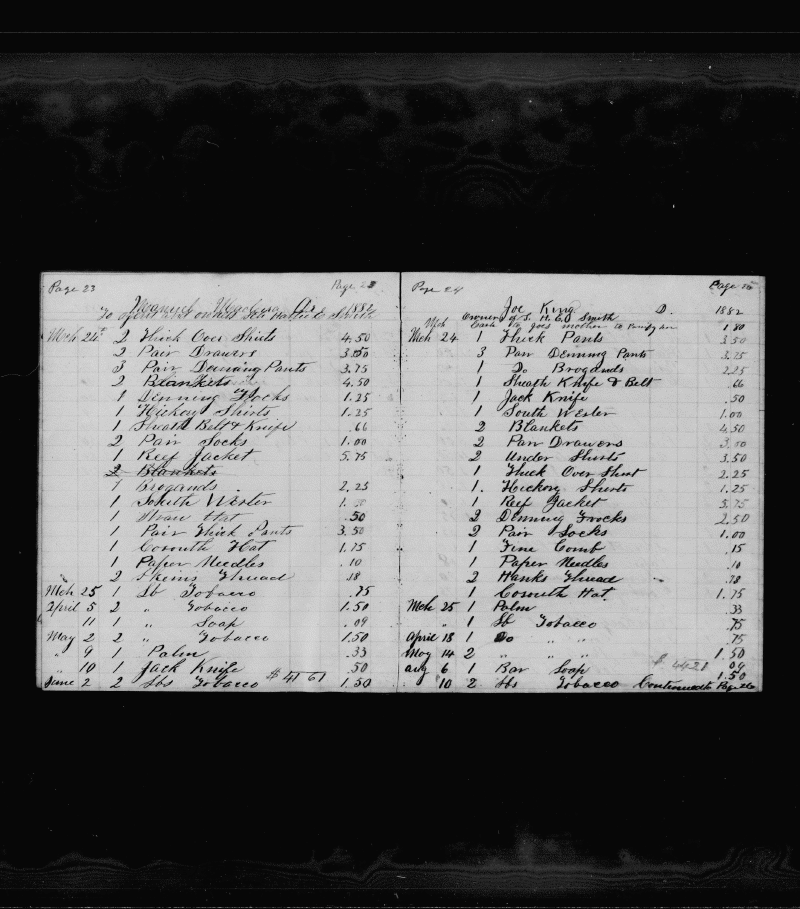 Page 23
Page 23
Dr. 1882
Mch 24 2 Thick Over Shirts 4.50
2 Pair Drawers 3.50
3 Pair Denning Pants 3.75
2 Blankets 4.50
1 Denning Frocks 1.25
1 Hickory Shirts 1.25
1 Sheath Belt & Knife .66
2 Pair Socks 1.00
1 Reef Jacket 5.75
2 Blankets
1 Brogands 2.25
1 South Wester 1.
1 Straw Hat .50
1 Pair Thick Pants 3.50
1 Cosouth Hat 1.75
1 Paper Needles .10
2 Skeins Thread .18
Mch 25 1 Lb Tobacco .75
April 5 2 " Tobacco 1.50
11 1 " Soap .09
May 2 2 " Tobacco 1.50
" 9 1 Palm .33
" 10 1 Jack Knife .50
June 2 2 Lbs Tobacco $41 61 1.50
Page 24
Page
Joe King D. 1882
Mch Owner of S. Smith
Joes mother 1 80
Mch 24 1 Thick Pants 3.50
3 Pair Denning Pants 3.75
1 Do Brogands 2.25
1 Sheath Knife & Belt .66
1 Jack Knife .50
1 South Wester 1.00
2 Blankets 4.50
2 Pair Drawers 3.00
2 Under Shirts 3.50
1 Thick Over Shirt 2.25
1. Hickory Shirts 1.25
1 Reef Jacket 5.75
2 Denning Frocks 2.50
2 Pair Socks 1.00
1 Fine Comb .15
1 Paper Needles .10
2 Hanks Thread .18
1 Cosouth Hat. 1.75
Mch 25 1 Palm .33
" 1 Lb Tobacco .75
April 18 1 Do " " .75
May 14 2 " " " 1.50
Aug 6 1 Bar Soap $ 4421 09
10 2 Lbs Tobacco 1.50 Continued to Page